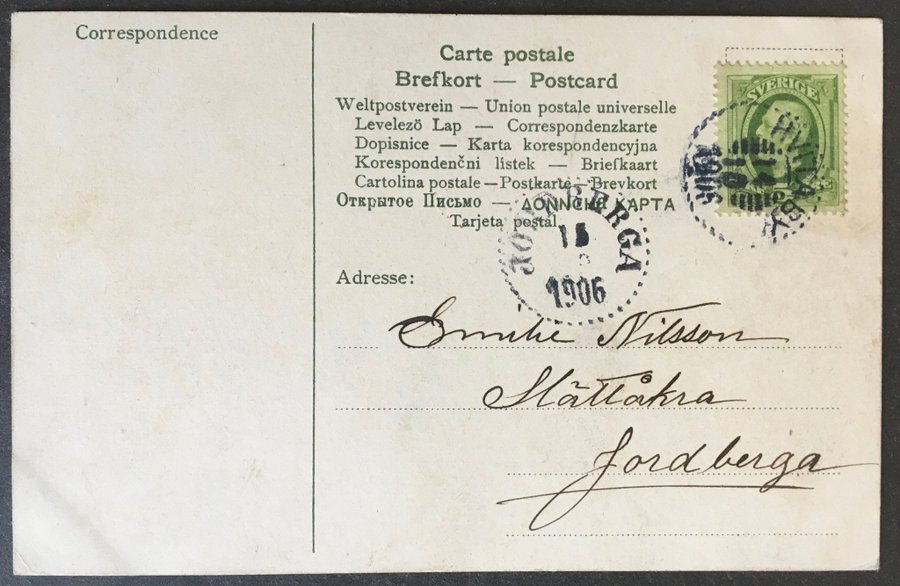 Correspondence
Carte postale
Brefkort — Postcard
Weltpostverein — Union postale universelle
Levelező Lap — Correspondenzkarte
Dopisnice — Karta korespondencyjna
Korespondenčni lístek — Briefkaart
Cartolina postale — Postkarte — Brevkort
Открытое Письмо — ΔΟΠΝСНС КАРТА
Tarjeta postal
SVERIGE
1906
BERGA
15
1906
Adresse:
Emilie Nilsson
Slättåkra
Jordberga